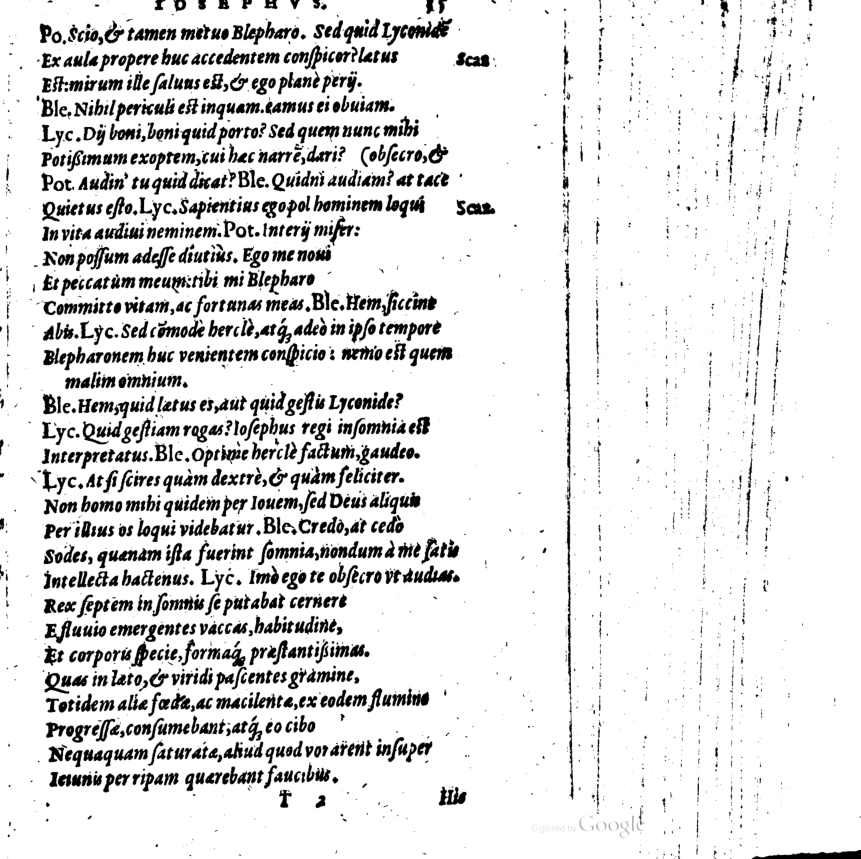 IOSEPHVS. 85
Po. Scio, & tamen metuo Blepharo. Sed quid Lyconidē
Ex aula propere huc accedentem conspicor? lætus Scaz
Est: mirum ille saluus est, & ego planè perij.
Ble. Nihil periculi est inquam. eamus ei obuiam.
Lyc. Dij boni, boni quid porto? Sed quem nunc mihi
Potißimum exoptem, cui hæc narrē, dari? (obsecro, &
Pot. Audin' tu quid dicat? Ble. Quidni audiam? at tace
Quietus esto. Lyc. Sapientius egopol hominem loqui Scaz.
In vita audiui neminem. Pot. Interij miser:
Non possum adesse diutiùs. Ego me noui
Et peccatum meum: tibi mi Blepharo
Committo vitam, ac fortunas meas. Ble. Hem, siccine
Abis. Lyc. Sed cōmodè herclè, atq; adeò in ipso tempore
Blepharonem huc venientem conspicio: nemo est quem
malim omnium.
Ble. Hem, quid lætus es, aut quid gestis Lyconide?
Lyc. Quid gestiam rogas? Iosephus regi insomnia est
Interpretatus. Ble. Optimè herclè factum, gaudeo.
Lyc. At si scires quàm dextrè, & quàm feliciter.
Non homo mihi quidem per Iouem, sed Deus aliquis
Per illius os loqui videbatur. Ble. Credo, at cedò
Sodes, quænam ista fuerint somnia, nondum à me satis
Intellecta hactenus. Lyc. Imò ego te obsecro vt audias.
Rex septem in somnis se putabat cernere
E fluuio emergentes vaccas, habitudine,
Et corporis specie, formaq; præstantißimas.
Quas in læto, & viridi pascentes gramine,
Totidem aliæ fœdæ, ac macilentæ, ex eodem flumine
Progressæ, consumebant, atq; eo cibo
Nequaquam saturatæ, aliud quod vorarent insuper
Ieiunis per ripam quærebant faucibus.
T 2 His
Digitized by Google